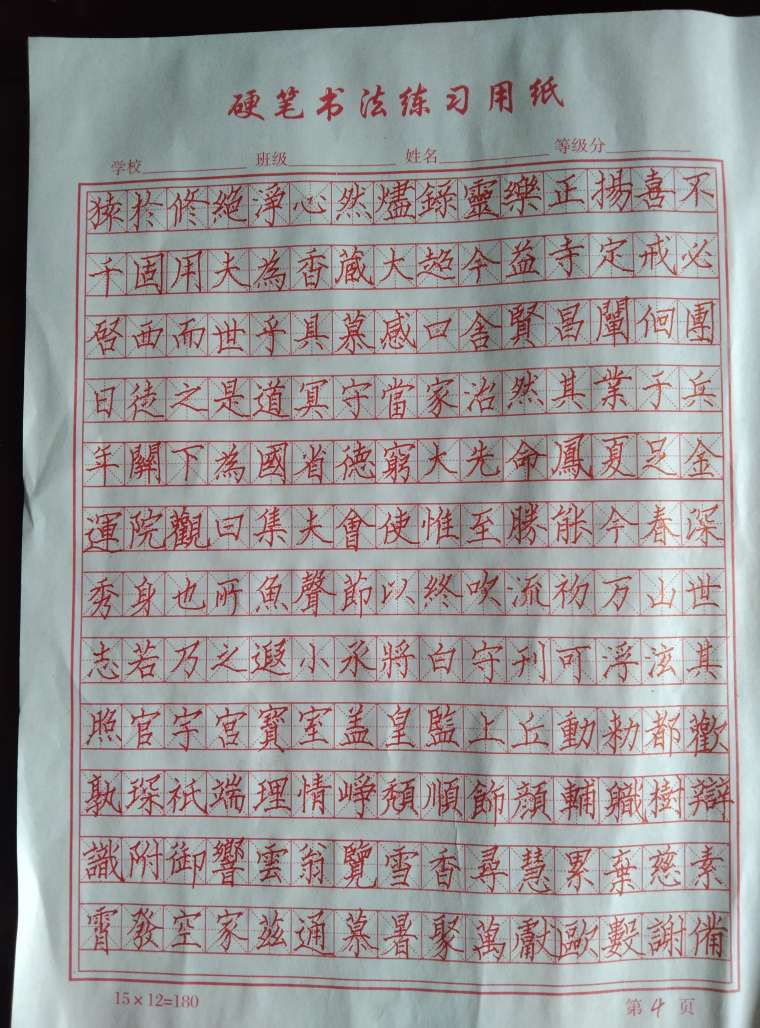 硬笔书法练习用纸
学校 班级 姓名 等级分
猿於修絕淨心然燼錄靈樂正揚喜不
千固用夫為香藏大超今益寺定戒必
啓西而世乎具慕感口含賢昌闡佪團
日徒之是道冥守當家治然其業于兵
年關下為國省德窮大先命鳳夏足金
運院觀曰集夫會使惟至勝能今春深
秀身也所魚聲節以終吹流初万山世
志若乃之遐小承將白守刊可浮泫其
照官宇宮寶室盖皇監上丘動勑都歡
孰琛祇端理情崢頹順飾顔輔職樹辯
識附御響雲翁覽雪香尋慧累棄慈素
霄發空家茲通慕暑聚萬獻歐數謝備
15×12=180
第4页